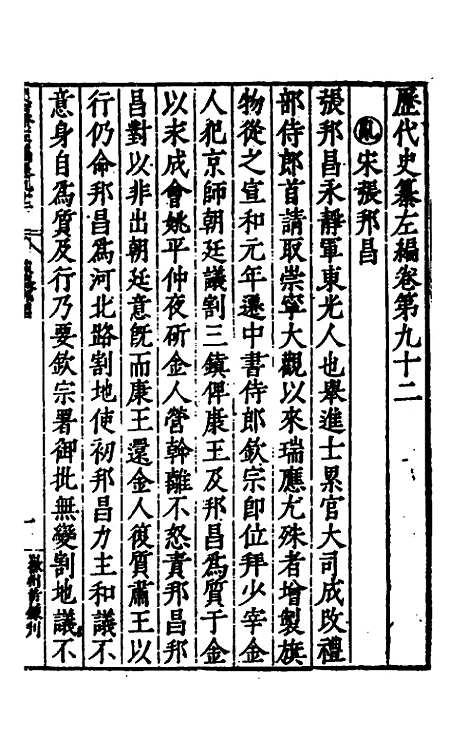 歷代史纂左編卷第九十二
亂宋張邦昌
張邦昌永靜軍東光人也舉進士累官大司成改禮
部侍郎首請取崇寧大觀以來瑞應尤殊者增製旗
物從之宣和元年遷中書侍郎欽宗卽位拜少宰金
人犯京師朝廷議割三鎮俾康王及邦昌爲質于金
以求成會姚平仲夜斫金人營斡離不怒責邦昌邦
昌對以非出朝廷意既而康王還金人復質肅王以
行仍命邦昌爲河北路割地使初邦昌力主和議不
意身自爲質及行乃要欽宗署御批無變割地議不